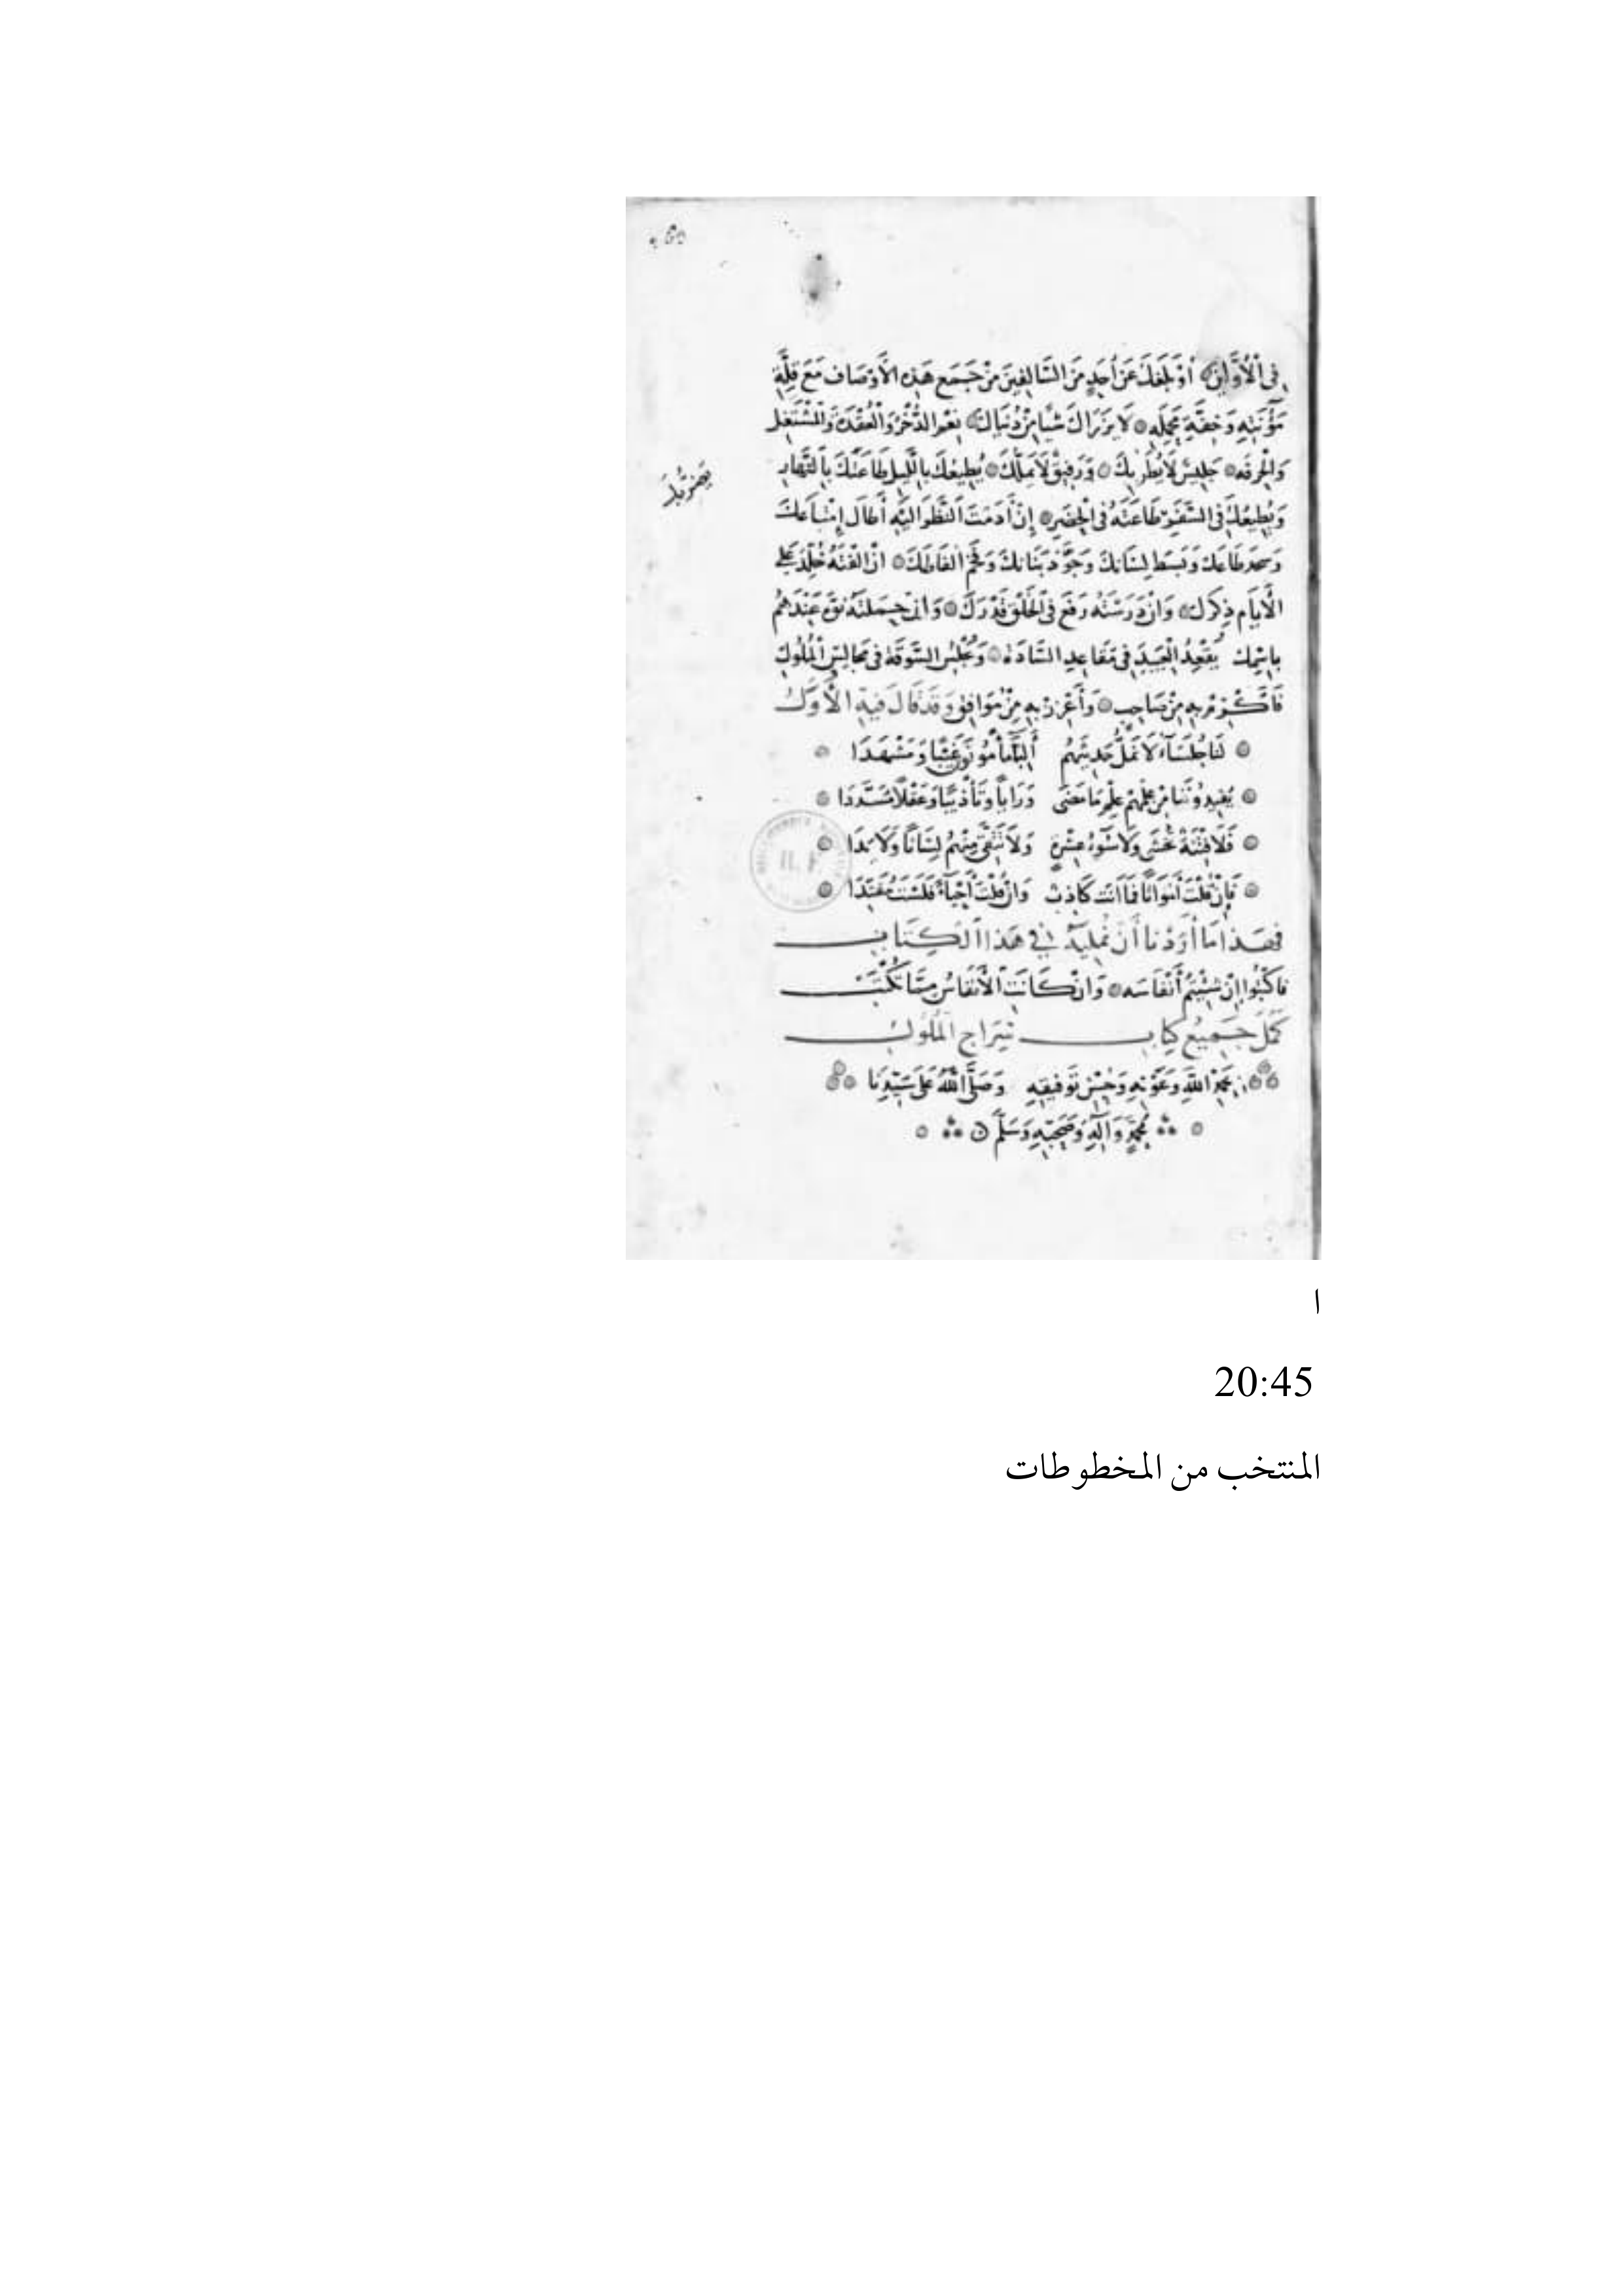 في الأوَّلين أوْ بَلَغَكَ عَنْ أحَدٍ مِنَ السَّالِفِينَ مَنْ جَمَعَ هَذِهِ الأوْصَاف مَعَ قِلَّةِ
مَؤُنَتِهِ وَخِفَّةِ مَحْمِلِهِ لَا يَرْزَاكَ شَيْئًا مِنْ دُنْيَاكَ نِعْمَ الذُّخْرُ وَالْعُقْدَةُ وَالْمُشْتَغَل
وَالْحِرفَة جَلِيسٌ لَا يُطْرِيكَ وَرَفِيقٌ لَا يَمَلُّكَ يُطِيعُكَ بِاللَّيلِ طَاعَتَكَ بِالنَّهَارِ
وَيُطِيعُكَ فِي السَّفَرِ طَاعَتَهُ فِي الْحَضَرِ إِنْ أَدَمْتَ النَّظَرَ إلَيْهِ أَطَالَ إِمْتَاعَكَ
وَبَسَطَ لِسَانَكَ وَجَوَّدَ بَنَانَكَ وَفَخَّمَ الفَاظَكَ انْ الَّفْتَهُ خَلَّدَ عَلَى
الْأَيَّامِ ذِكرَكَ وَانْ دَرَسْتَهُ رَفَعَ فِي الْخَلْقِ قَدْرَكَ وَانْ حَمَلْتَهُ نَوَّهَ عِنْدَهُمْ
بِاسْمِكَ يُقْعِدُ الْعَبِيدَ فِي مَقَاعِدِ السَّادَةِ وَيُجْلِسُ السُّوقَةَ فِي مَجَالِسِ الْمُلُوكِ
فَأَكْرِمْ بِهِ مِنْ صَاحِبٍ وَأَعْزِزْ بِهِ مِنْ مُوَافِقٍ وَقَدْ قَالَ فِيهِ الْأَوَّلُ
لَنَا جُلَسَاءُ لَا نَمَلُّ حَدِيثَهُمْ أَلِبَّاءُ مَأْمُونُونَ غَيْبًا وَمَشْهَدَا
يُفِيدُونَنَا مِنْ عِلْمِهِمْ عِلْمَ مَا مَضَى وَرَايًا وَتَأْدِيبًا وَعَقْلًا مُسَدَّدَا
فَلَا فِتْنَةٌ تُخْشَى وَلَا سُوءُ عِشْرَةٍ وَلَا نَتَّقِي مِنْهُمْ لِسَانًا وَلَا يَدَا
فَإِنْ قُلْتَ أَمْوَاتًا فَمَا انْتَ كَاذِبٌ وَانْ قُلْتَ أَحْيَاءً فَلَسْتَ مُفَنَّدَا
فَهَذَا مَا أَرَدْنَا أَنْ نُمْلِيَهُ فِي هَذَا الْكِتَابِ
فَاكْتُبُوا إِنْ شِئْتُمْ أَنْفَاسَه وَانْ كَانَتِ الْأَنْفَاسُ مِمَّا تُكْتَبُ
كَمُلَ جَمِيعُ كِتَابِ سِرَاجِ الْمُلُوكِ
بِحَمْدِ اللَّهِ وَعَوْنِهِ وَحُسْنِ تَوْفِيقِهِ وَصَلَّى اللَّهُ عَلَى سَيِّدِنَا
مُحَمَّدٍ وَآلِهِ وَصَحْبِهِ وَسَلَّمَ
ا
20:45
المنتخب من المخطوطات